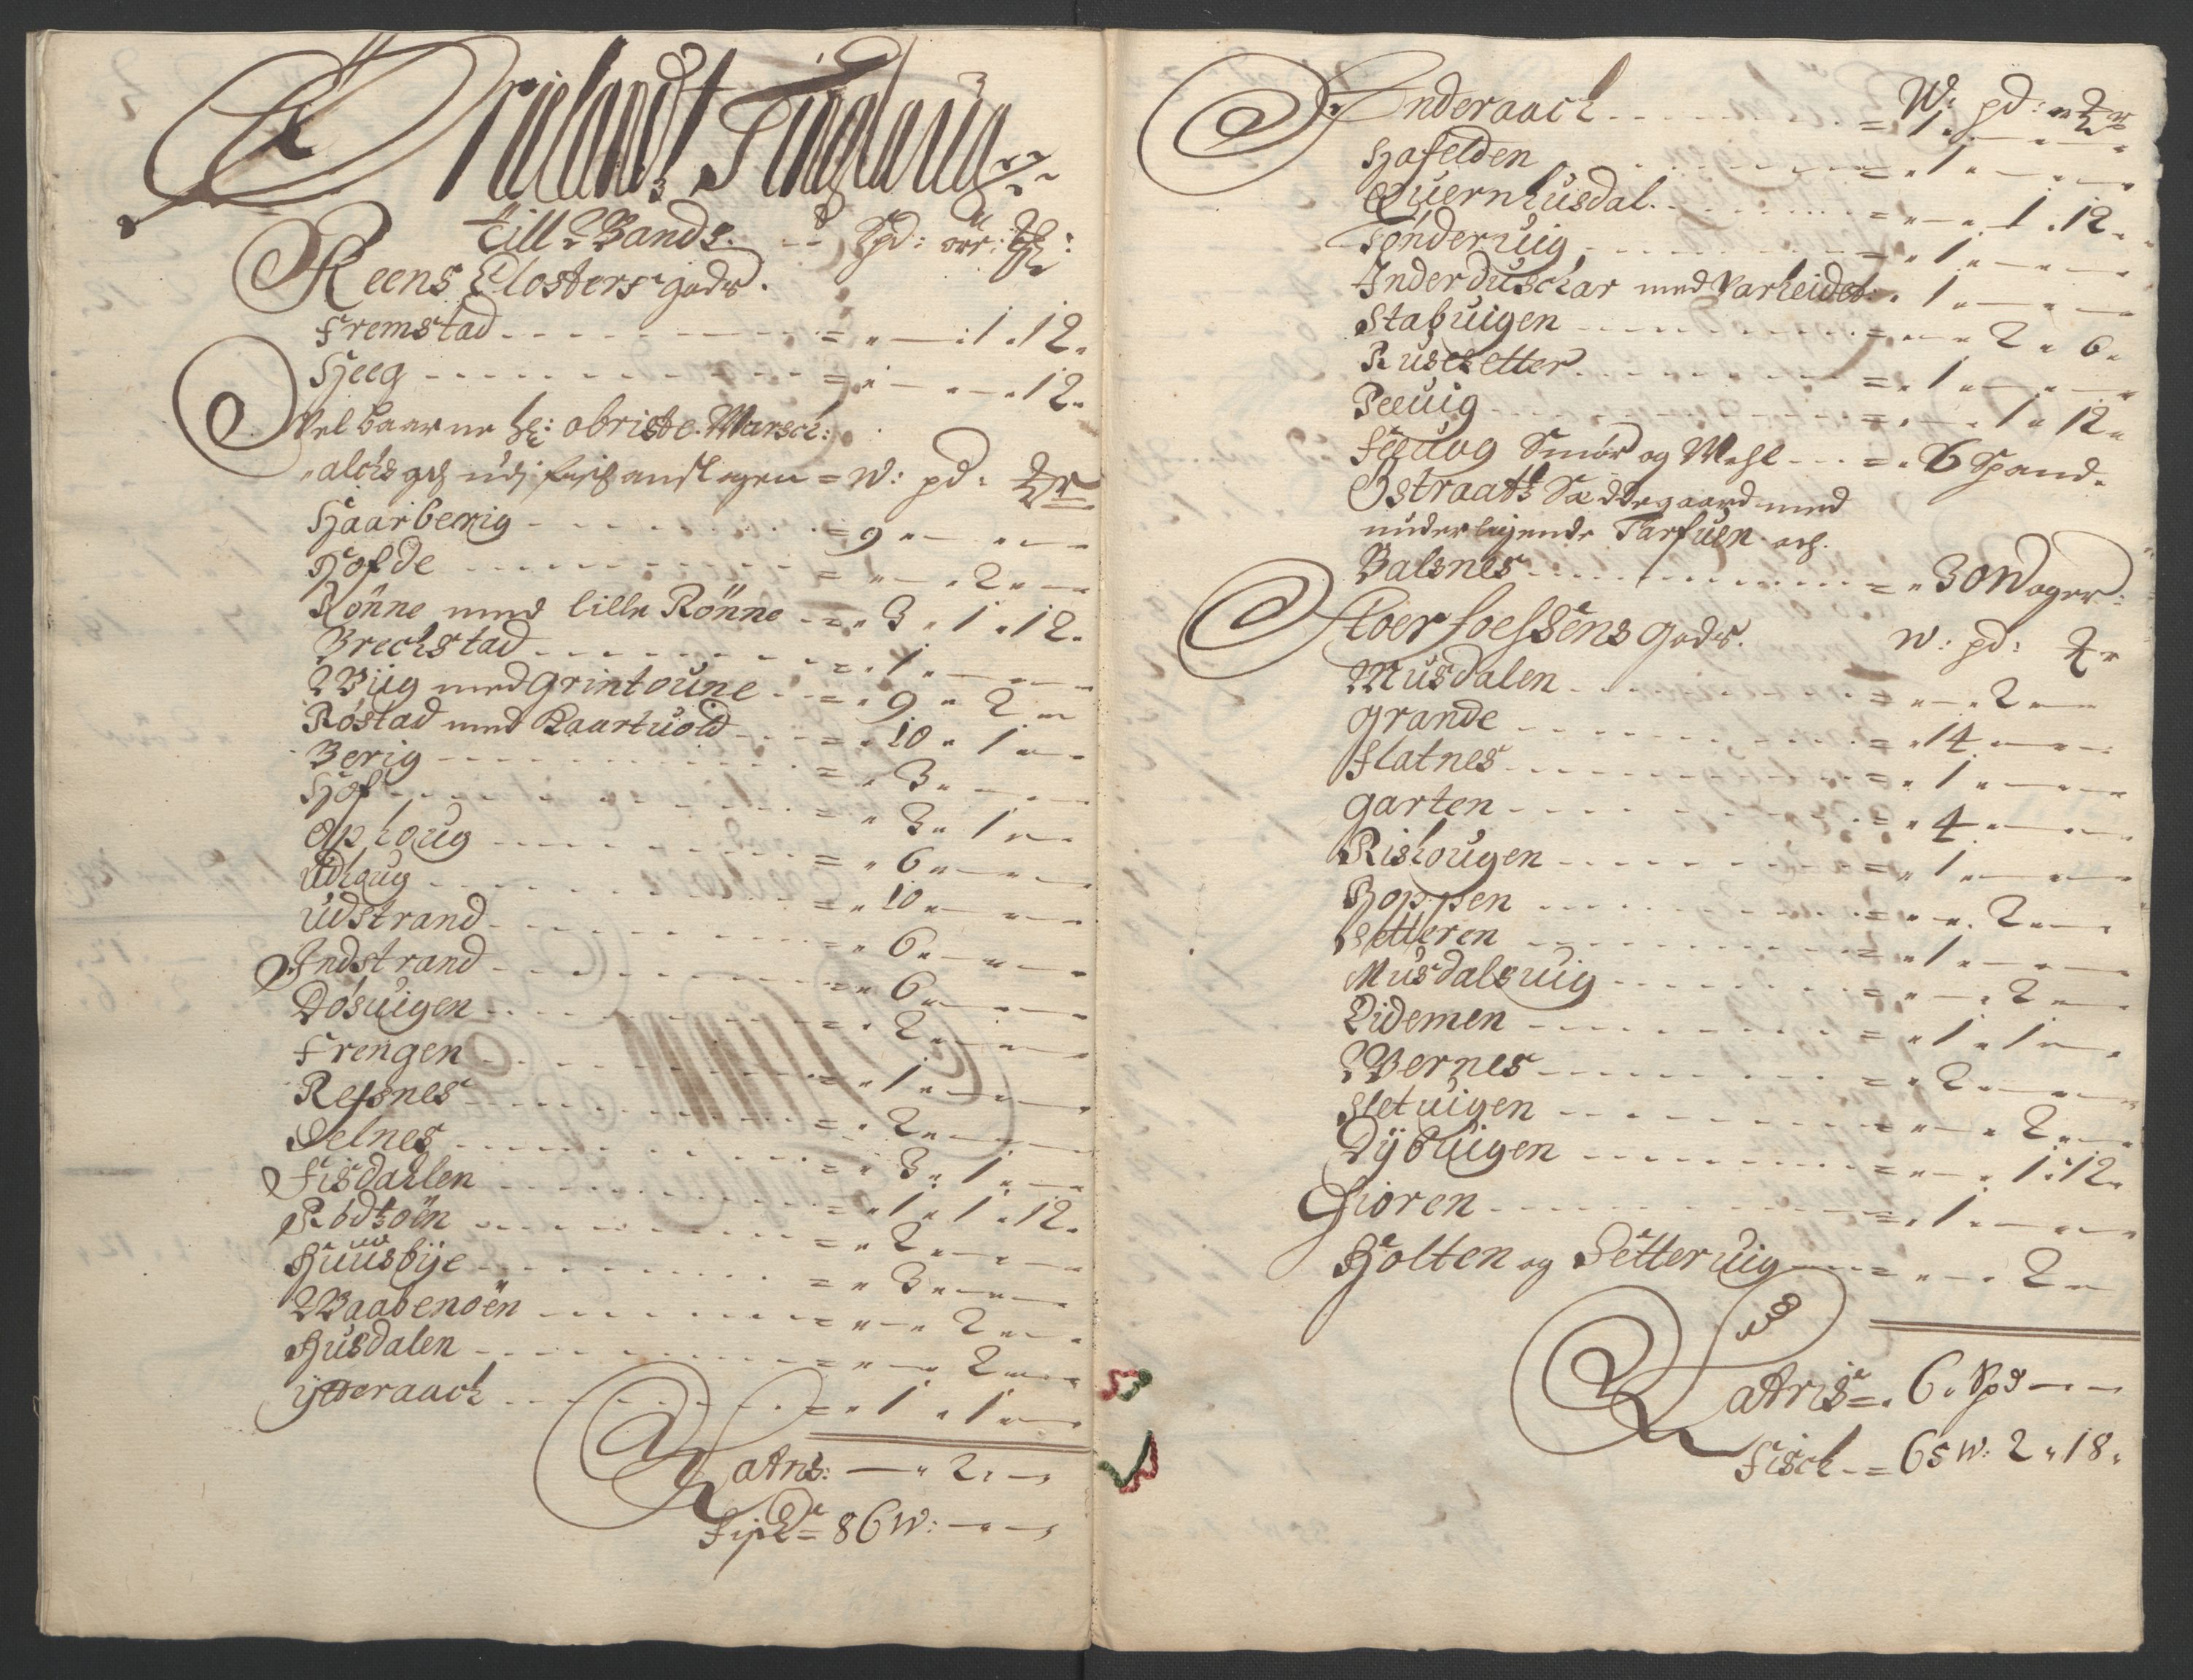 Ørielandt Tinglaug
till Lands. Spd: ørr: mkr:
Reens Closters gods.
Fremstad - - - = " — : 1 " 12 "
Heeg - - - = " — " — " 12 "
Velbaarne Hr: obriste Marsch:
alchs gds udj fisch anslagen = W: pd: mkr
Haarberrig - - - = 9 " — " — "
Hofde - - - = " — " 2 " — "
Rönne med lille Rönne - - = " 3 " 1 " 12 "
Brechstad - - - = " 1 " — " — "
Wiig med Grintoune - - = " 9 " 2 " —
Røstad med Kaartuold - - = " 10 " 1 " — "
Berig - - - = " 3 " — " — "
Hof - - - = " 3 " 1 " —
Ophoug - - - = " 6 " — " — "
Udhaug - - - = " 10 " — " — "
Udstrand - - - = " 6 " — " — "
Indstrand - - - = " 6 " — " — "
Døsuigen - - - = " 2 " — " — "
Frengen - - - = " 1 " — " — "
Resnes - - - = " 2 " — " — "
Selnes - - - = " 3 " 1 " — "
Fisdahlen - - - = " 1 " 1 " 12 "
Rödsöen - - - = " 2 " — " — "
Huusbÿe - - - = " 3 " — " — "
Waabenöen - - - = " — " 2 " — "
Husdalen - - - = " — " 2 " — "
Ytteraach - - - = " 1 " 1 " — "
Lateris: — " 2 " — "
Fisch = 86 W: — " — "
Inderaach - - - W: pd: mkr
= 1 " — " — "
Hafelden - - - = " 1 " — " — "
Quernhusdal - - - = " — " 1 " 12 "
Sønderuig - - - = " 1 " — " — "
Inderduschar med Varheidet = " 1 " — " —
Stabuigen - - - = " — " 2 " 6 "
Rusesetter - - - = " 1 " — " — "
Peeuig - - - = " — " 1 " 12 "
Feedog Smör og Mehl - - - = " 6 Spand "
Østraatt Sædegaard med
underligende Tarfuen och
Balsnes - - - = " 30 Woger:
Stoerfoessens gods. W: pd: mkr
Musdalen - - - = " — " 2 " —
Grande - - - = " 14 " — " —
Flatnes - - - = " 1 " — " — "
Garten - - - = " 4 " — " — "
Rishougen - - - = " 1 " — " — "
Hoppen - - - = " — " 2 " — "
Setteren - - - = " 1 " — " — "
Musdalsuig - - - = " — " 2 " — "
Eidemen - - - = " 1 " 1 " — "
Wernes - - - = " 2 " — " — "
Sletuigen - - - = " — " 2 " — "
Dÿbuigen - - - = " — " 1 : 12 "
Fioren - - - = " 1 " — " — "
Holten og Setteruig - - = " — " 2 " —
Lateris = " 6 " Spd — " —
Fisch - = 65 W: 2 " 18 "